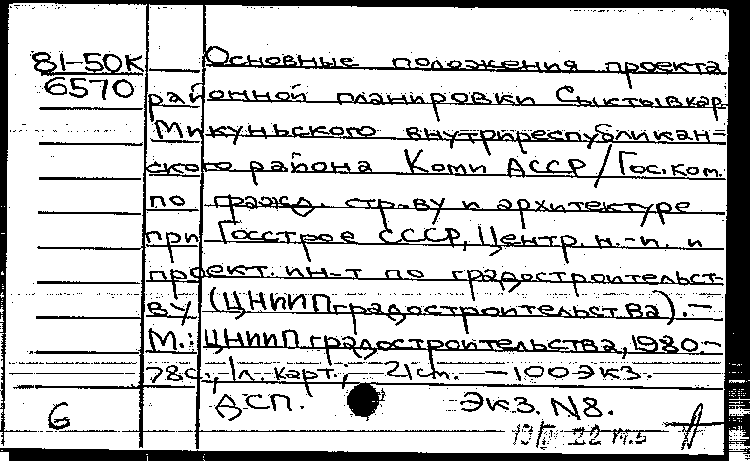 81-50К Основные положения проекта
6570 районной планировки Сыктывкар
Микуньского внутриреспубликан-
ского района Коми АССР / Гос. ком.
по гражд. стр-ву и архитектуре
при Госстрое СССР, Центр. н.-и. и
проект. ин-т по градостроительст-
ву (ЦНИИПградостроительства). –
М.: ЦНИИПградостроительства, 1980. –
78с., 1л. карт.; 21см. – 100 экз.
ДСП. Экз. N8.
6